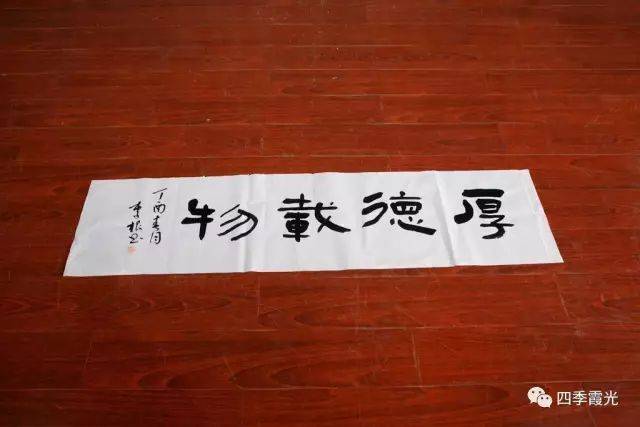 厚德載物
丁酉春月
李根书
四季霞光